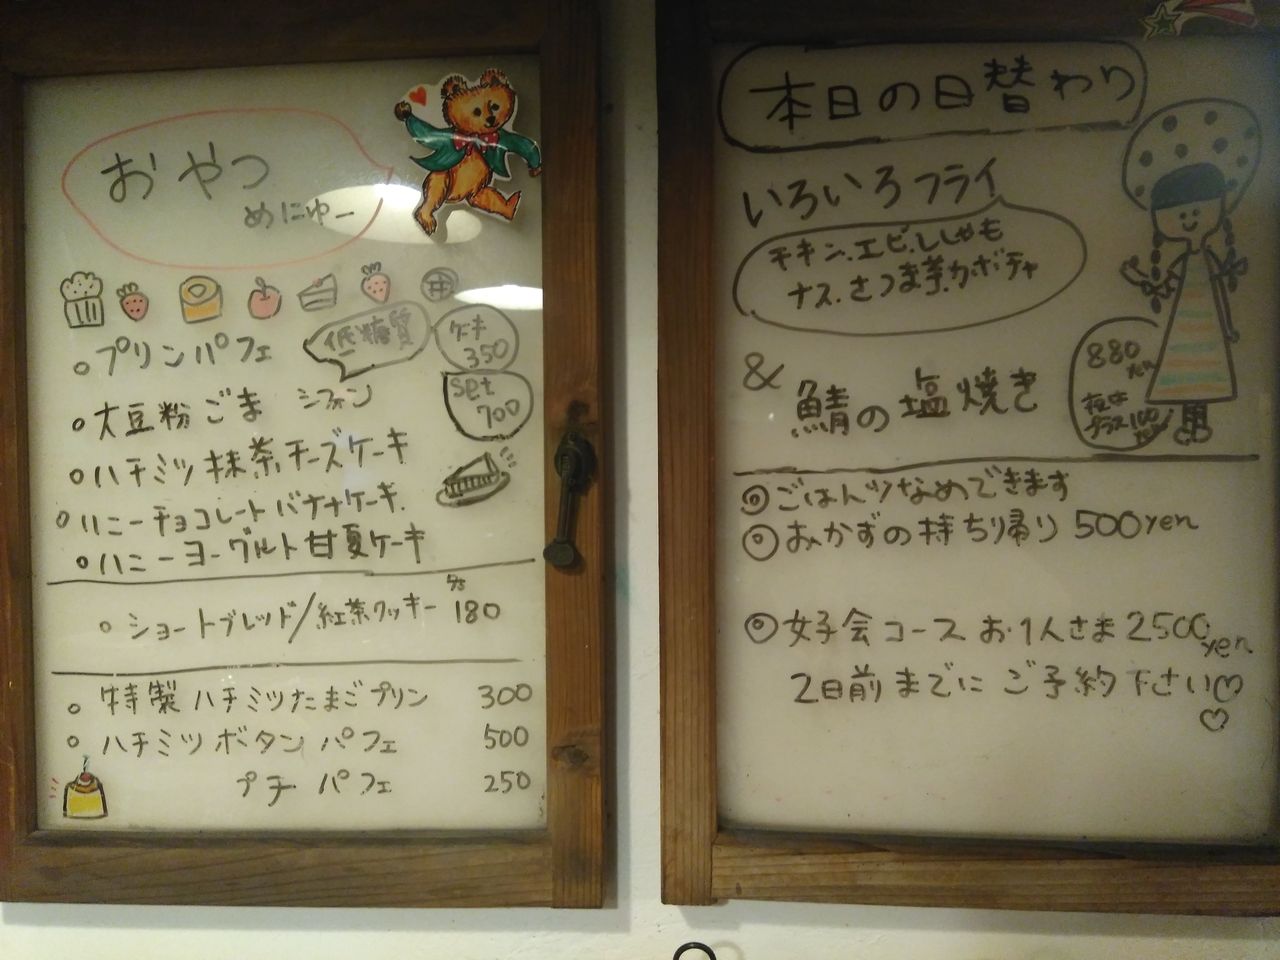 おやつ
めにゅー
プリンパフェ
低糖質
ケーキ
350
set
700
大豆粉ごま シフォン
ハチミツ抹茶チーズケーキ
ハニーチョコレートバナナケーキ
ハニーヨーグルト甘夏ケーキ
ショートブレッド/紅茶クッキー 180
特製ハチミツたまごプリン 300
ハチミツボタン パフェ 500
プチ パフェ 250
本日の日替わり
いろいろフライ
チキン.エビ.ししゃも
ナス.さつま芋.カボチャ
&
鯖の塩焼き
880
yen
夜は
プラス100
yen
◎ごはんツなめできます
◎おかずの持ち帰り 500yen
◎女子会コース お1人さま2500yen
2日前までに ご予約下さい♡
♡